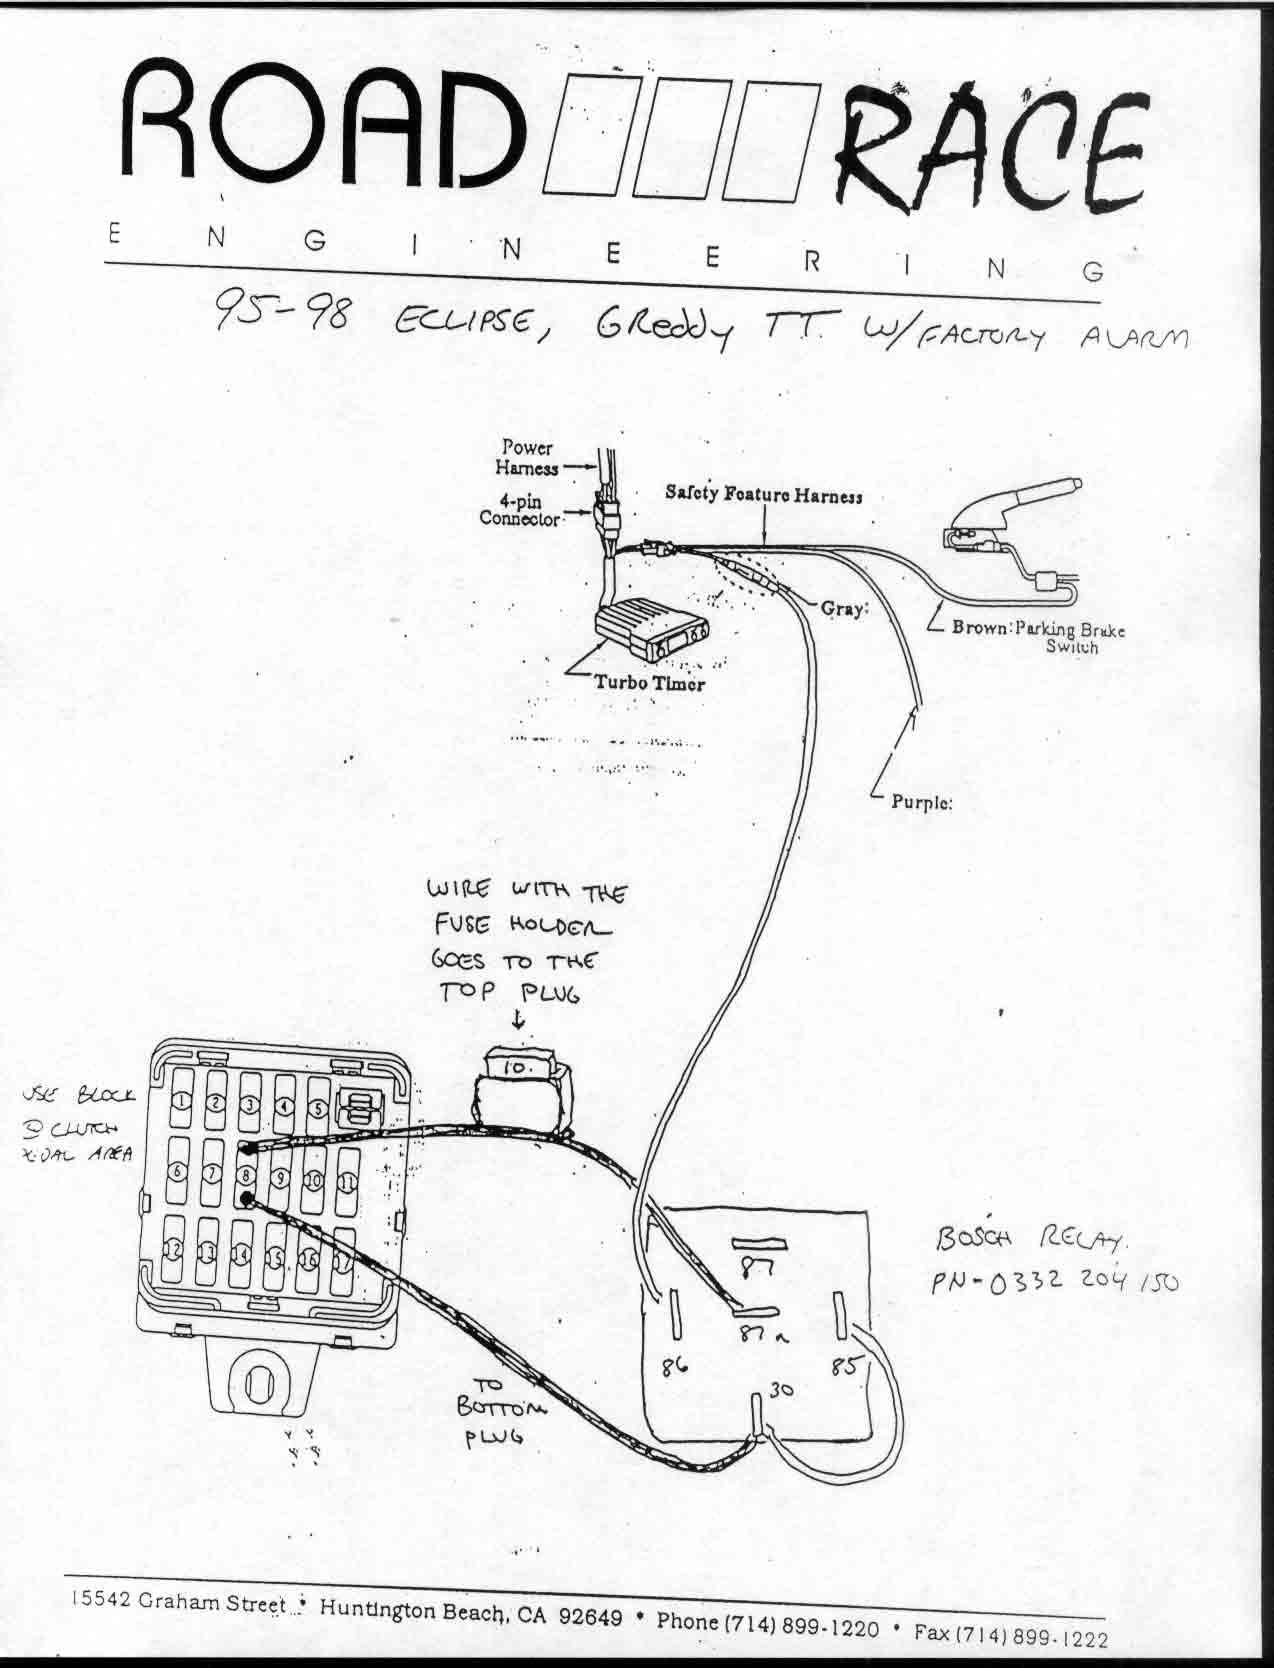 ROAD RACE
ENGINEERING
95-98 ECLIPSE, GReddy TT. W/FACTORY ALARM
Power
Harness
4-pin
Connector
Safety Feature Harness
Gray:
Brown:Parking Brake
Switch
Turbo Timer
Purple:
WIRE WITH THE
FUSE HOLDER
GOES TO THE
TOP PLUG
10
USE BLOCK
CLUTCH
AREA
1 2 3 4 5
6 7 8 9 10 11
12 13 14 15 16 17
87
87a
86
85
30
BOSCH RELAY.
PN-0332 204 150
TO
BOTTOM
PLUG
15542 Graham Street • Huntington Beach, CA 92649 • Phone (714) 899-1220 • Fax (714) 899-1222